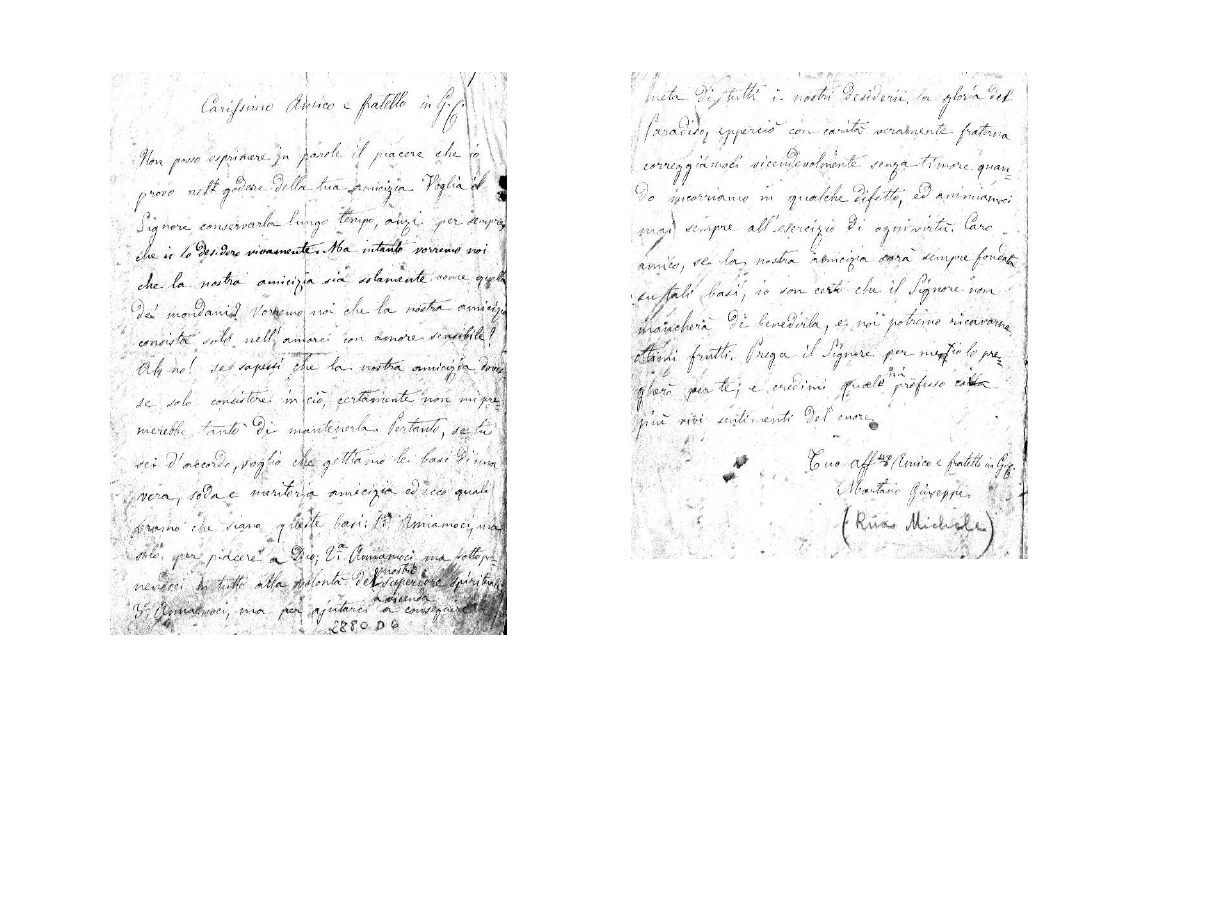 Carissimo Amico e fratello in G. C.
Non posso esprimere in parole il piacere che io
provo nell godere della tua amicizia Voglia il
Signore conservarla lungo tempo, anzi per sempre,
che io lo desidero vivamente. Ma intanto vorremo noi
che la nostra amicizia sia solamente come quella
dei mondani? Vorremo noi che la nostra amicizia
consista solo nell'amarci con amore sensibile?
Ah no! se sapessi che la nostra amicizia doves
se solo consistere in ciò, certamente non mi pre=
merebbe tanto di mantenerla. Pertanto, se tu
sei d'accordo, voglio che gettiamo le basi di una
vera, soda e meritoria amicizia ed ecco quali
bramo che siano queste basi: 1ª Amiamoci, ma
solo per piacere a Dio; 2ª Amiamoci ma sottopo
nendoci in tutto alla volontà del nostro superiore spirituale
3ª Amiamoci, ma per ajutarci a vicenda a conseguire la
2880 D 6
meta di tutti i nostri desiderii, la gloria del
Paradiso, epperciò con carità veramente fraterna
correggiamoci vicendevolmente senza timore quan=
do incorriamo in qualche difetto, ed animiamoci
mai sempre all'esercizio di ogni virtù. Caro
amico, se la nostra amicizia sarà sempre fondata
su tali basi, io son certo che il Signore non
mancherà di benedirla, e noi potremo ricavarne
ottimi frutti. Prega il Signore per me, io lo pre=
gherò per te; e credimi quale mi professo coi
più vivi sentimenti del cuore.
Tuo aff.mo Amico e fratello in G. C.
Giuseppe
(Rua Michele)